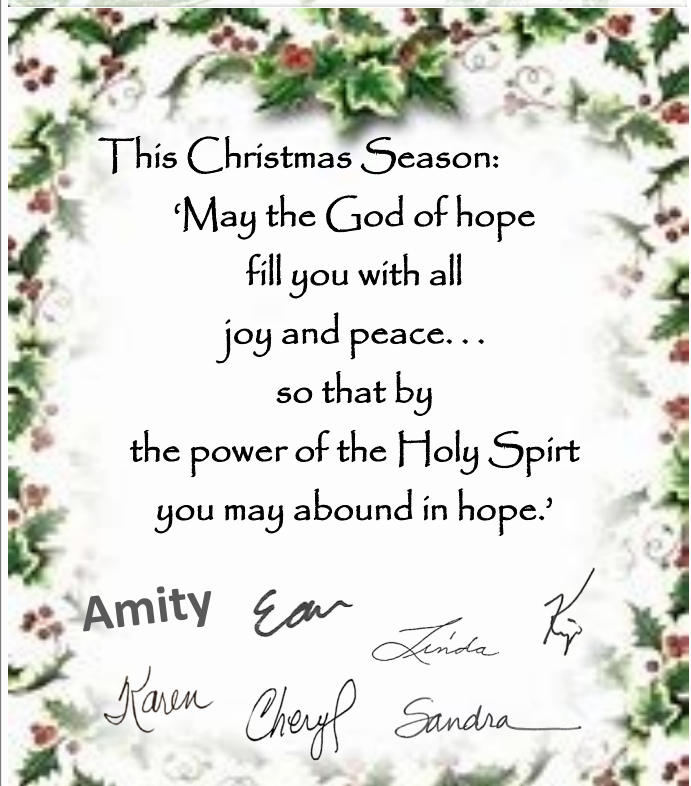 This Christmas Season:
‘May the God of hope
fill you with all
joy and peace. . .
so that by
the power of the Holy Spirt
you may abound in hope.’
Amity Linda Kip
Karen Cheryl Sandra